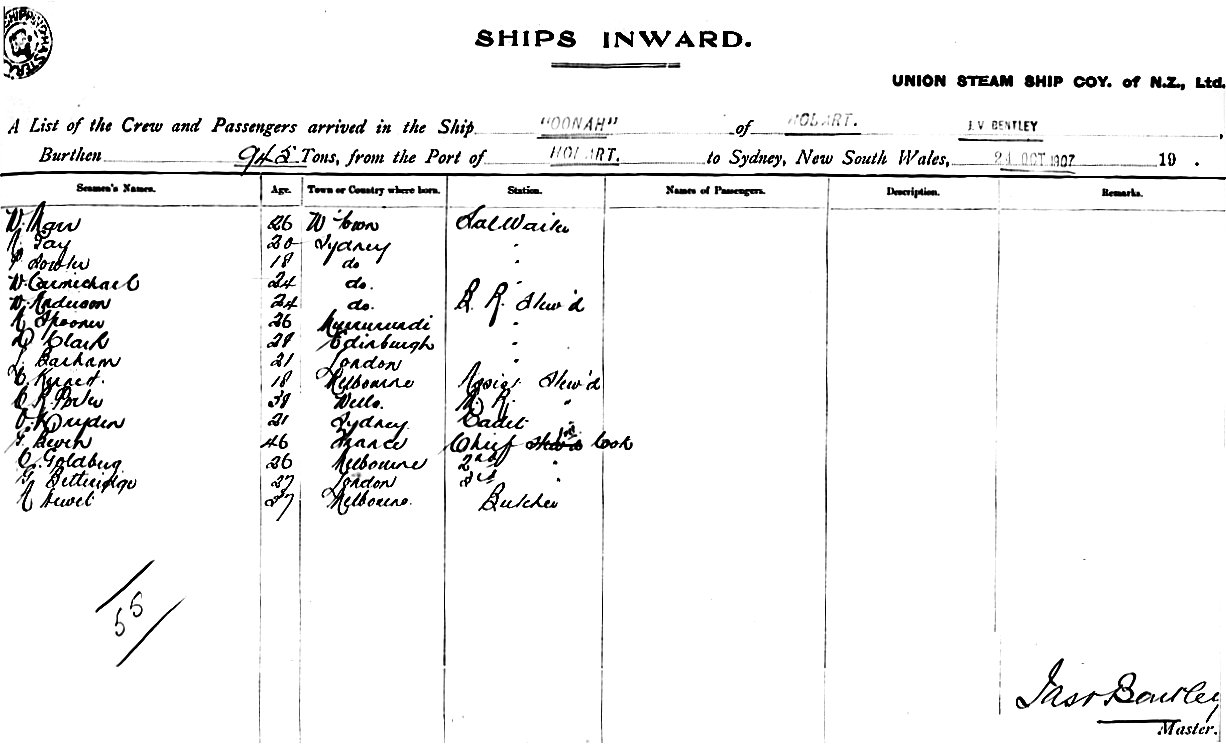 SHIPPING MASTER
SHIPS INWARD.
UNION STEAM SHIP COY. of N.Z., Ltd.
A List of the Crew and Passengers arrived in the Ship "OONAH" of HOBART. J.V. BENTLEY ,
Burthen 945 Tons, from the Port of HOBART. to Sydney, New South Wales, OCT 1907 19 .
Seamen's Names. Age. Town or Country where born. Station. Names of Passengers. Description. Remarks.
W. 26 Sal Waiter
20 Sydney "
18 do "
W. Carmichael 24 do. "
W. Anderson 24 do. B. R. Stew'd
Spooner 26 Murrurundi "
Clark 28 Edinburgh "
Barham 21 London "
18 Melbourne Assist Stew'd
R. Porter 38 "
Dryden 21 Sydney Cadet
46 France Chief Cook
C. Goldberg 26 Melbourne 2nd "
G. Betteridge 27 London 3rd "
Melbourne. Butcher
55
Bentley
Master.